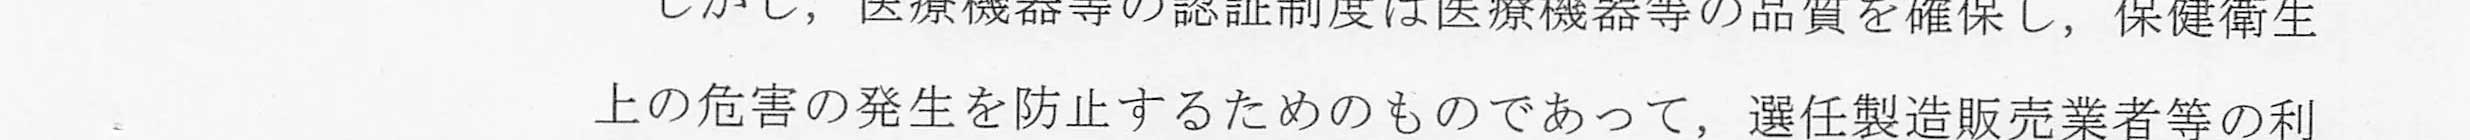 しかし，医療機器等の認証制度は医療機器等の品質を確保し，保健衛生
上の危害の発生を防止するためのものであって，選任製造販売業者等の利